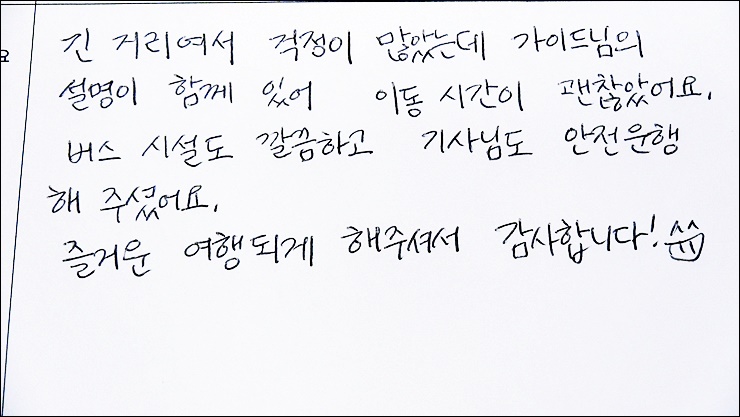 요
긴 거리여서 걱정이 많았는데 가이드님의
설명이 함께 있어 이동 시간이 괜찮았어요.
버스 시설도 깔끔하고 기사님도 안전운행
해 주셨어요.
즐거운 여행되게 해주셔서 감사합니다!